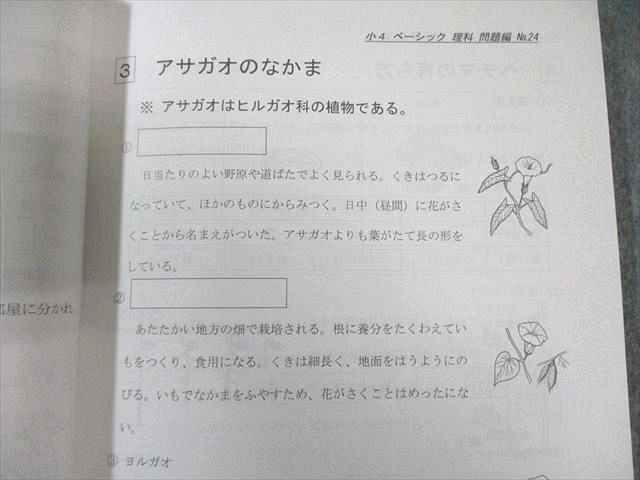 小4 ベーシック 理科 問題編 №24
3 アサガオのなかま
※ アサガオはヒルガオ科の植物である。
①
日当たりのよい野原や道ばたでよく見られる。くきはつるに
なっていて、ほかのものにからみつく。日中（昼間）に花がさ
くことから名まえがついた。アサガオよりも葉がたて長の形を
している。
②
あたたかい地方の畑で栽培される。根に養分をたくわえてい
もをつくり、食用になる。くきは細長く、地面をはうようにの
びる。いもでなかまをふやすため、花がさくことはめったにな
い。
③ ヨルガオ
部屋に分かれ